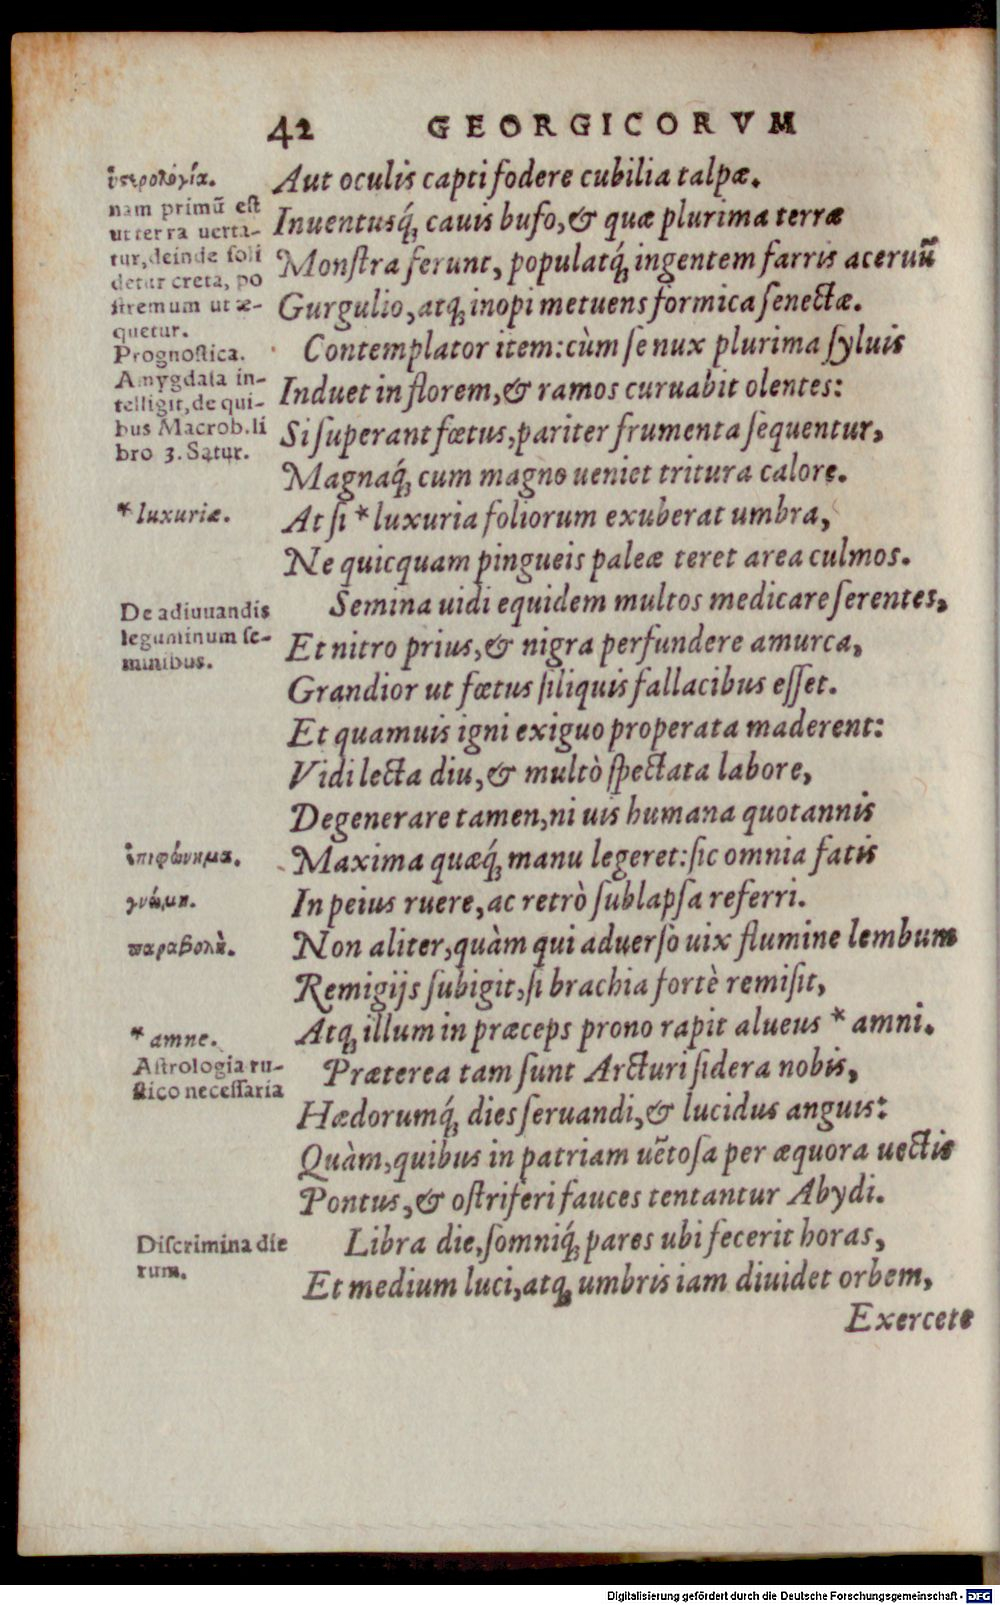 42 GEORGICORVM
ὑστερολογία.
nam primũ est
ut terra uerta-
tur, deinde soli
detur creta, po
stremum ut æ-
quetur.
Prognostica.
Amygdala in-
telligit, de qui-
bus Macrob. li
bro 3. Satur.
* luxuriæ.
De adiuuandis
leguminum se-
minibus.
ἐπιφώνημα.
γνώμη.
παραβολὴ.
* amne.
Astrologia ru-
stico necessaria
Discrimina die
rum.
Aut oculis capti fodere cubilia talpæ.
Inuentusq́; cauis bufo, & quæ plurima terræ
Monstra ferunt, populatq́; ingentem farris aceruũ
Gurgulio, atq; inopi metuens formica senectæ.
Contemplator item: cùm se nux plurima syluis
Induet in florem, & ramos curuabit olentes:
Si superant fœtus, pariter frumenta sequentur,
Magnaq́; cum magno ueniet tritura calore.
At si * luxuria foliorum exuberat umbra,
Ne quicquam pingueis paleæ teret area culmos.
Semina uidi equidem multos medicare serentes,
Et nitro prius, & nigra perfundere amurca,
Grandior ut fœtus siliquis fallacibus esset.
Et quamuis igni exiguo properata maderent:
Vidi lecta diu, & multò spectata labore,
Degenerare tamen, ni uis humana quotannis
Maxima quæq́; manu legeret: sic omnia fatis
In peius ruere, ac retrò sublapsa referri.
Non aliter, quàm qui aduerso uix flumine lembum
Remigijs subigit, si brachia fortè remisit,
Atq; illum in præceps prono rapit alueus * amni.
Præterea tam sunt Arcturi sidera nobis,
Hædorumq́; dies seruandi, & lucidus anguis:
Quàm, quibus in patriam uẽtosa per æquora uectis
Pontus, & ostriferi fauces tentantur Abydi.
Libra die, somniq́; pares ubi fecerit horas,
Et medium luci, atq; umbris iam diuidet orbem,
Exercete
Digitalisierung gefördert durch die Deutsche Forschungsgemeinschaft - DFG